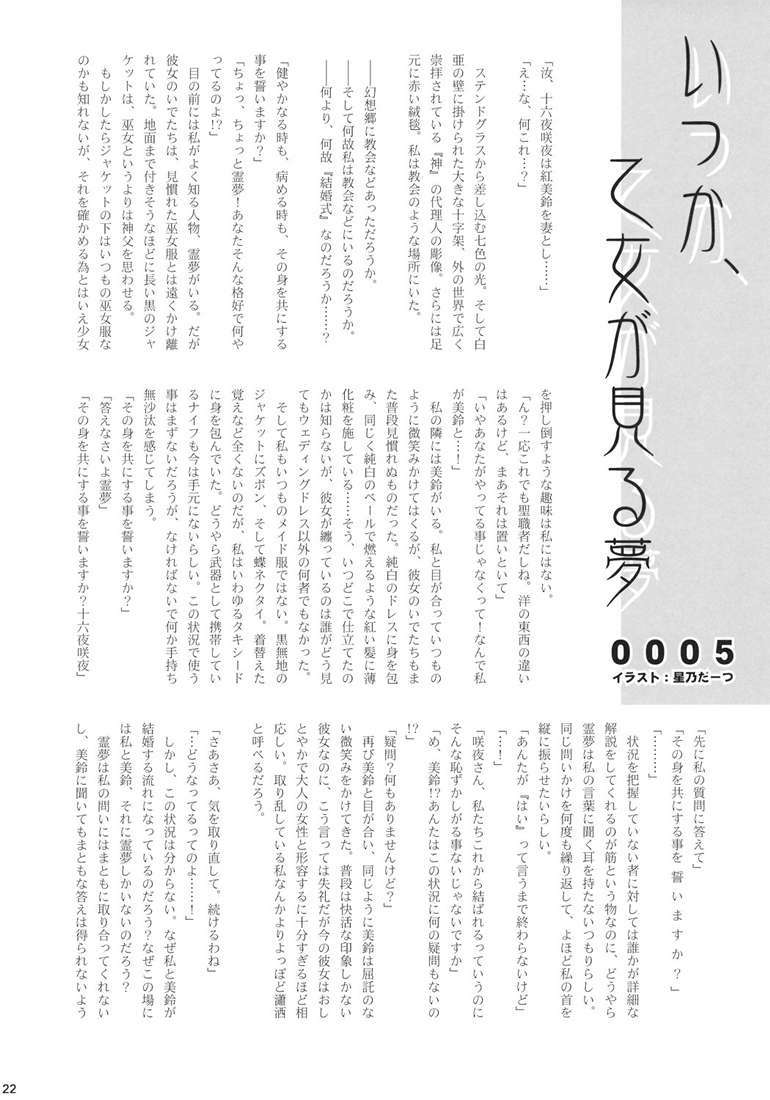 いつか、
乙女が見る夢
0005
イラスト：星乃だーつ
「汝、十六夜咲夜は紅美鈴を妻とし……」
「え…な、何これ…？」
ステンドグラスから差し込む七色の光。そして白
亜の壁に掛けられた大きな十字架、外の世界で広く
崇拝されている『神』の代理人の彫像。さらには足
元に赤い絨毯。私は教会のような場所にいた。
――幻想郷に教会などあっただろうか。
――そして何故私は教会などにいるのだろうか。
――何より、何故『結婚式』なのだろうか……？
「健やかなる時も、病める時も、その身を共にする
事を誓いますか？」
「ちょっ、ちょっと霊夢！あなたそんな格好で何や
ってるのよ!?」
目の前には私がよく知る人物、霊夢がいる。だが
彼女のいでたちは、見慣れた巫女服とは遠くかけ離
れていた。地面まで付きそうなほどに長い黒のジャ
ケットは、巫女というよりは神父を思わせる。
もしかしたらジャケットの下はいつもの巫女服な
のかも知れないが、それを確かめる為とはいえ少女
を押し倒すような趣味は私にはない。
「ん？一応これでも聖職者だしね。洋の東西の違い
はあるけど、まあそれは置いといて」
「いやあなたがやってる事じゃなくって！なんで私
が美鈴と…！」
私の隣には美鈴がいる。私と目が合っていつもの
ように微笑みかけてはくるが、彼女のいでたちもま
た普段見慣れぬものだった。純白のドレスに身を包
み、同じく純白のベールで燃えるような紅い髪に薄
化粧を施している……そう、いつどこで仕立てたの
かは知らないが、彼女が纏っているのは誰がどう見
てもウェディングドレス以外の何者でもなかった。
そして私もいつものメイド服ではない。黒無地の
ジャケットにズボン、そして蝶ネクタイ。着替えた
覚えなど全くないのだが、私はいわゆるタキシード
に身を包んでいた。どうやら武器として携帯してい
るナイフも今は手元にないらしい。この状況で使う
事はまずないだろうが、なければないで何か手持ち
無沙汰を感じてしまう。
「その身を共にする事を誓いますか？」
「答えなさいよ霊夢」
「その身を共にする事を誓いますか？十六夜咲夜」
「先に私の質問に答えて」
「その身を共にする事を 誓 い ま す か ？」
「………」
状況を把握していない者に対しては誰かが詳細な
解説をしてくれるのが筋という物なのに、どうやら
霊夢は私の言葉に聞く耳を持たないつもりらしい。
同じ問いかけを何度も繰り返して、よほど私の首を
縦に振らせたいらしい。
「あんたが『はい』って言うまで終わらないけど」
「…！」
「咲夜さん、私たちこれから結ばれるっていうのに
そんな恥ずかしがる事ないじゃないですか」
「め、美鈴!?あんたはこの状況に何の疑問もないの
!?
「疑問？何もありませんけど？」
再び美鈴と目が合い、同じように美鈴は屈託のな
い微笑みをかけてきた。普段は快活な印象しかない
彼女なのに、こう言っては失礼だが今の彼女はおし
とやかで大人の女性と形容するに十分すぎるほど相
応しい。取り乱している私なんかよりよっぽど瀟洒
と呼べるだろう。
「さあさあ、気を取り直して。続けるわね」
「…どうなってるってのよ………！」
しかし、この状況は分からない。なぜ私と美鈴が
結婚する流れになっているのだろう？なぜこの場に
は私と美鈴、それに霊夢しかいないのだろう？
霊夢は私の問いにはまともに取り合ってくれない
し、美鈴に聞いてもまともな答えは得られないよう
22